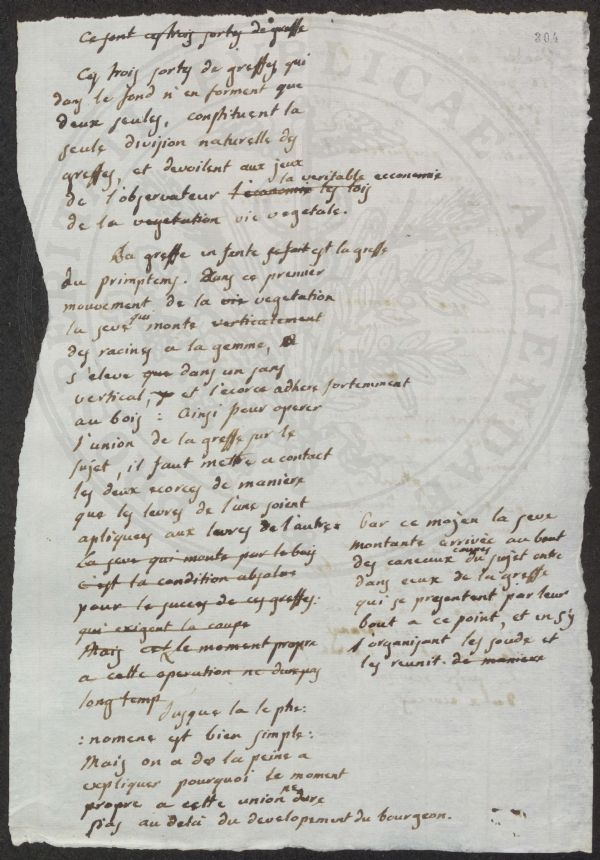 304
Ce sont ces trois sortes de greffe
Ces trois sortes de greffes qui
dans le fond n'en forment que
deux seules, constituent la
seule division naturelle des
greffes, et devoilent aux jeux
la veritable economie
de l'observateur l'economie les lois
de la vegetation vie vegetale.
La greffe en fente se fait est la greffe
du primptems. Dans ce premier
mouvement de la vie vegetation
la seve qui monte verticalement
des racines a la gemme,
s'eleve que dans un sans
vertical, et l'ecorce adhere fortemment
au bois : Ainsi pour operer
l'union de la greffe sur le
sujet, il faut mettre a contact
les deux ecorces de maniere
que les levres de l'une soient
apliquees aux levres de l'autre
La seve qui monte par le bois
c'est la condition absolue
pour le succes de ces greffes:
qui exigent la coupe
Mais le moment propre
a cette operation ne dure pas
long temp
Par ce mojen la seve
montante arrivée au bout
des caneaux coupes du sujet entre
dans ceux de la greffe
qui se presentent par leur
bout a ce point, et en s'y
organisant les soude et
les reunit. de maniere
Jusque la le phe:
:nomene est bien simple:
Mais on a de la peine a
expliquer pourquoi le moment
propre a cette union ne dure
pas au delà du developement du bourgeon.